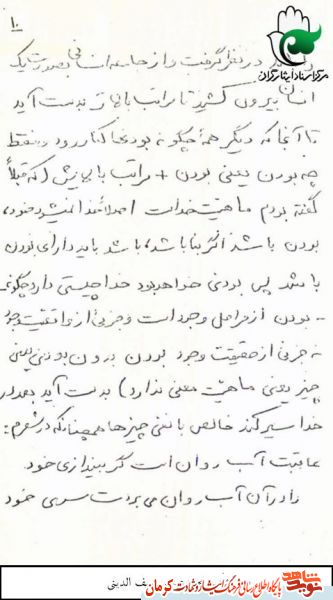 ۱۰
مرکز اسناد ایثارگران
در نظر گرفت و از جامعه انسانی بصورت یک
انسان بیرون کشید تا مراتب بالاتر بدست آید
تا آنجا که دیگر همهٔ چگونه بودنها کنار رود و فقط
چه بودن یعنی بودن + مراتب با
گفته بودم ماهیت خداست
بودن باشد اگر بنا باشد، باشد باید دارای بودن
باشد پس بودنی خواهد بود خدا چیستی دارد چگونه
- بودن از مراحل وجود است و جزئی از واقعیت وجود
نه جزئی از حقیقت وجود بودن درون بودن یعنی
چیز یعنی ماهیت معنی ندارد) بدست آید بعد از
خدا سیر کند خالص با نفی چیزها همچنانکه در شعرم:
عاقبت آب روان است گر بیندازی خود
را در آن آب روان می بردت سوی خود
یف الدینی
نوید شاهد
پایگاه اطلاع رسانی فرهنگ ایثار و شهادت کرمان